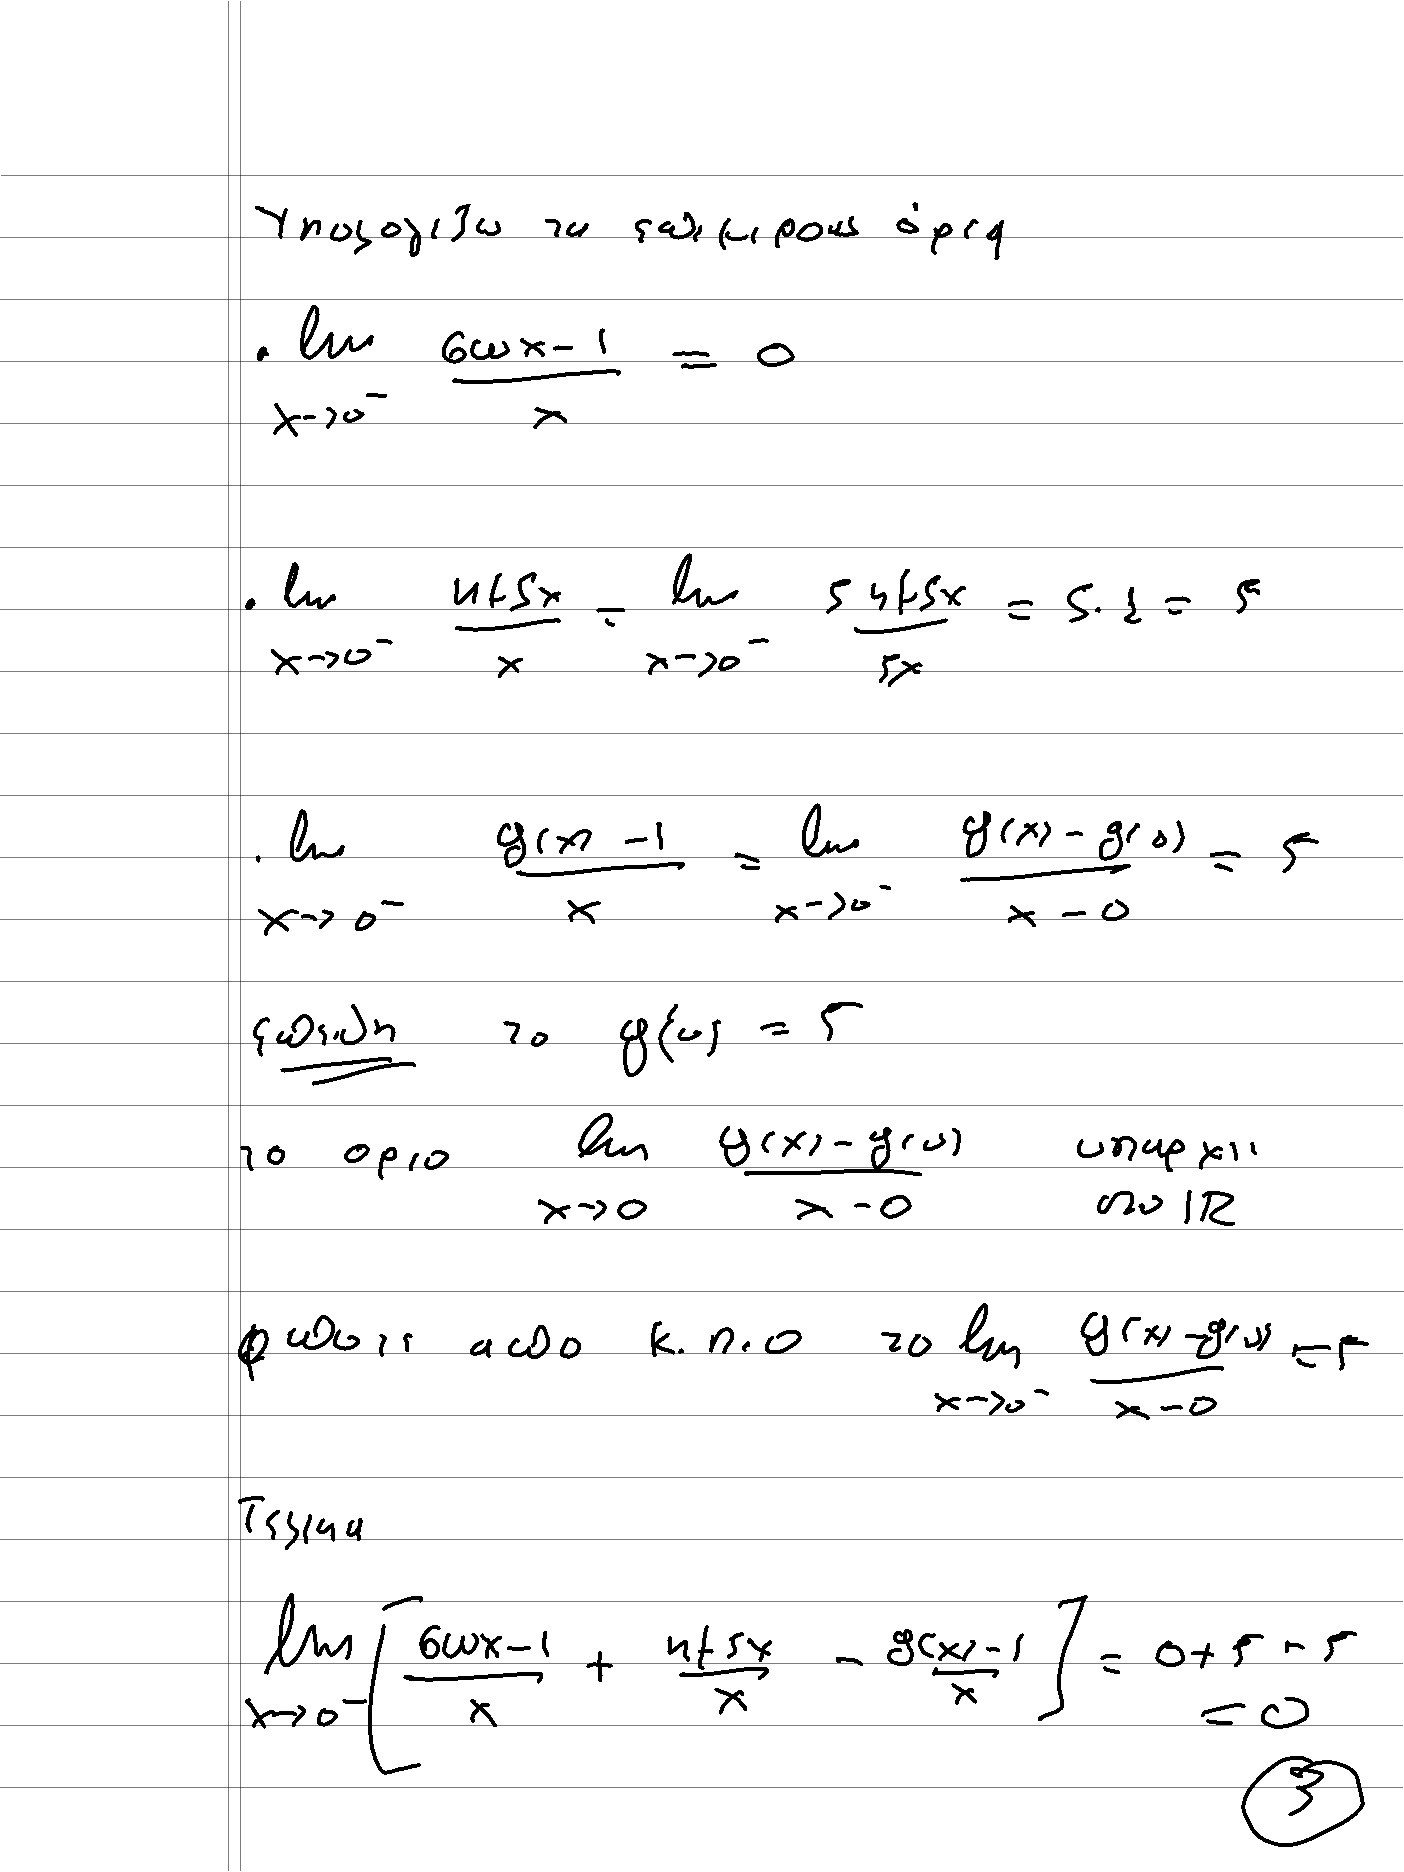 Υπολογίζω τα επιμέρους όρια
. lim_{x→0^-} \frac{συνx-1}{x} = 0
. lim_{x→0^-} \frac{ημ5x}{x} = lim_{x→0^-} \frac{5 ημ5x}{5x} = 5·1 = 5
. lim_{x→0^-} \frac{g(x)-1}{x} = lim_{x→0^-} \frac{g(x)-g(0)}{x-0} = 5
επειδη το g'(0) = 5
το οριο lim_{x→0} \frac{g(x)-g(0)}{x-0} υπαρχει
στο IR
απο Κ.Π.Ο το lim_{x→0^-} \frac{g(x)-g(0)}{x-0} = 5
Τελικα
lim_{x→0^-} [ \frac{συνx-1}{x} + \frac{ημ5x}{x} - \frac{g(x)-1}{x} ] = 0+5-5
= 0
3